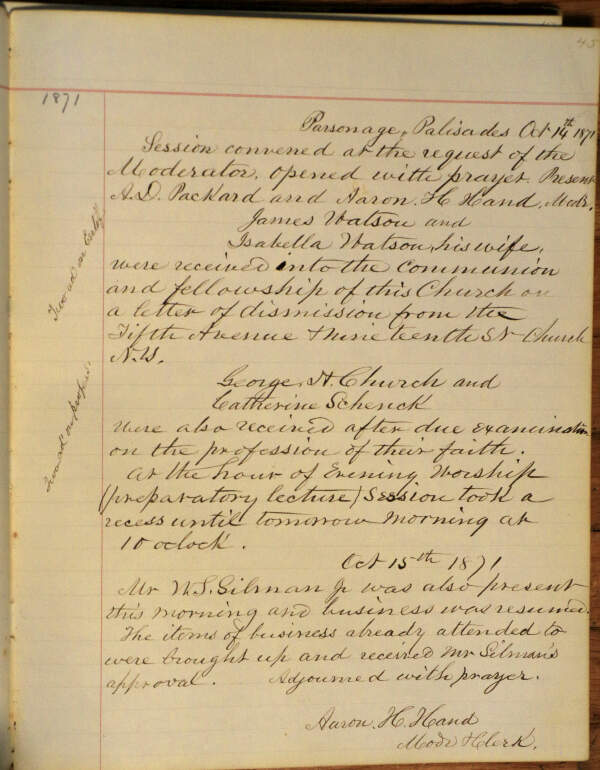 45
1871
Parsonage, Palisades Oct 14th 1871
Session convened at the request of the
Moderator, opened with prayer. Present
A. D. Packard and Aaron. H. Hand, Modr.
James Watson and
Isabella Watson, his wife,
were received into the communion
and fellowship of this Church on
a letter of dismission from the
Fifth Avenue & Nineteenth St Church
N.Y.
George. H. Church and
Catherine Schenck
were also received after due examination
on the profession of their faith.
At the hour of Evening Worship
(preparatory lecture) Session took a
recess until tomorrow morning at
10 oclock.
Oct 15th 1871
Mr W. S. Gilman Jr was also present
this morning and business was resumed.
The items of business already attended to
were brought up and received Mr Gilman's
approval. Adjourned with prayer.
Aaron. H. Hand
Modr & Clerk.
Two ad on
Two ad on profess.